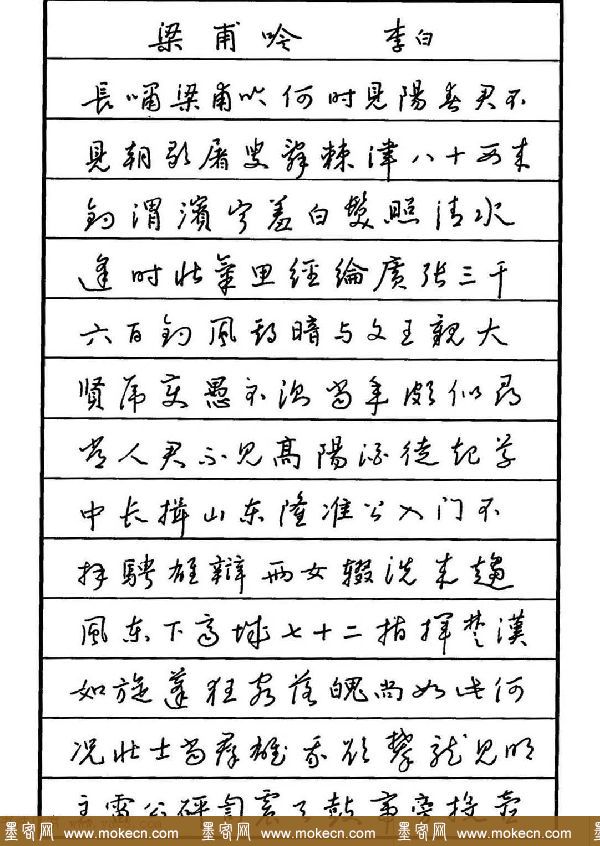 梁甫吟 李白
長嘯梁甫吟何时見陽春君不
見朝歌屠叟辭棘津八十西来
釣渭濱宁羞白髮照清水
逢时壮氣思經綸廣張三千
六百釣風期暗与文王親大
贤虎变愚不测当年颇似尋
常人君不见高陽酒徒起草
中长揖山东隆准公入门不
拜騁雄辯两女輟洗来趨
風东下齐城七十二指揮楚漢
如旋蓬狂客落魄尚如此何
况壮士当群雄我欲攀龍见明
主雷公砰訇震天鼓帝旁投壺
墨客网 www.mokecn.com 墨客网 www.mokecn.com 墨客网 www.mokecn.com